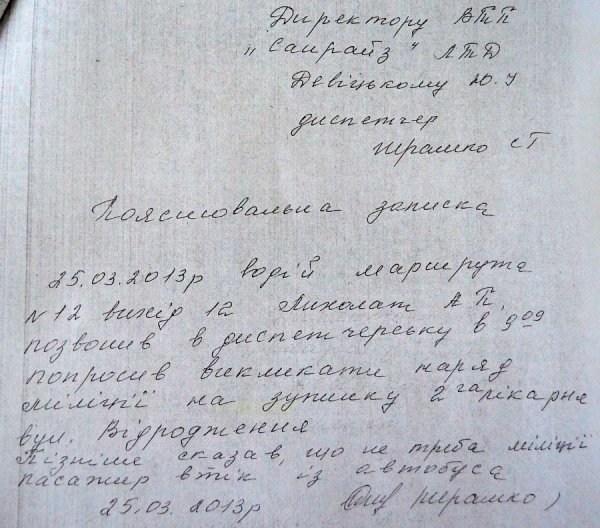 Директору ВТП
„Санрайз" ЛТД
Девіцькому Ю.У
диспетчер
Терашко СТ
Пояснювальна записка
25.03.2013р водій маршрута
N 12 вихід 12 Лихолат А П,
позвонив в диспетчерську в 9 09
попросив викликати наряд
міліції на зупинку 2га лікарня
вул. Відродження
Пізніше сказав, що не треба міліції
пасажир втік із автобуса
25.03.2013р Терашко)